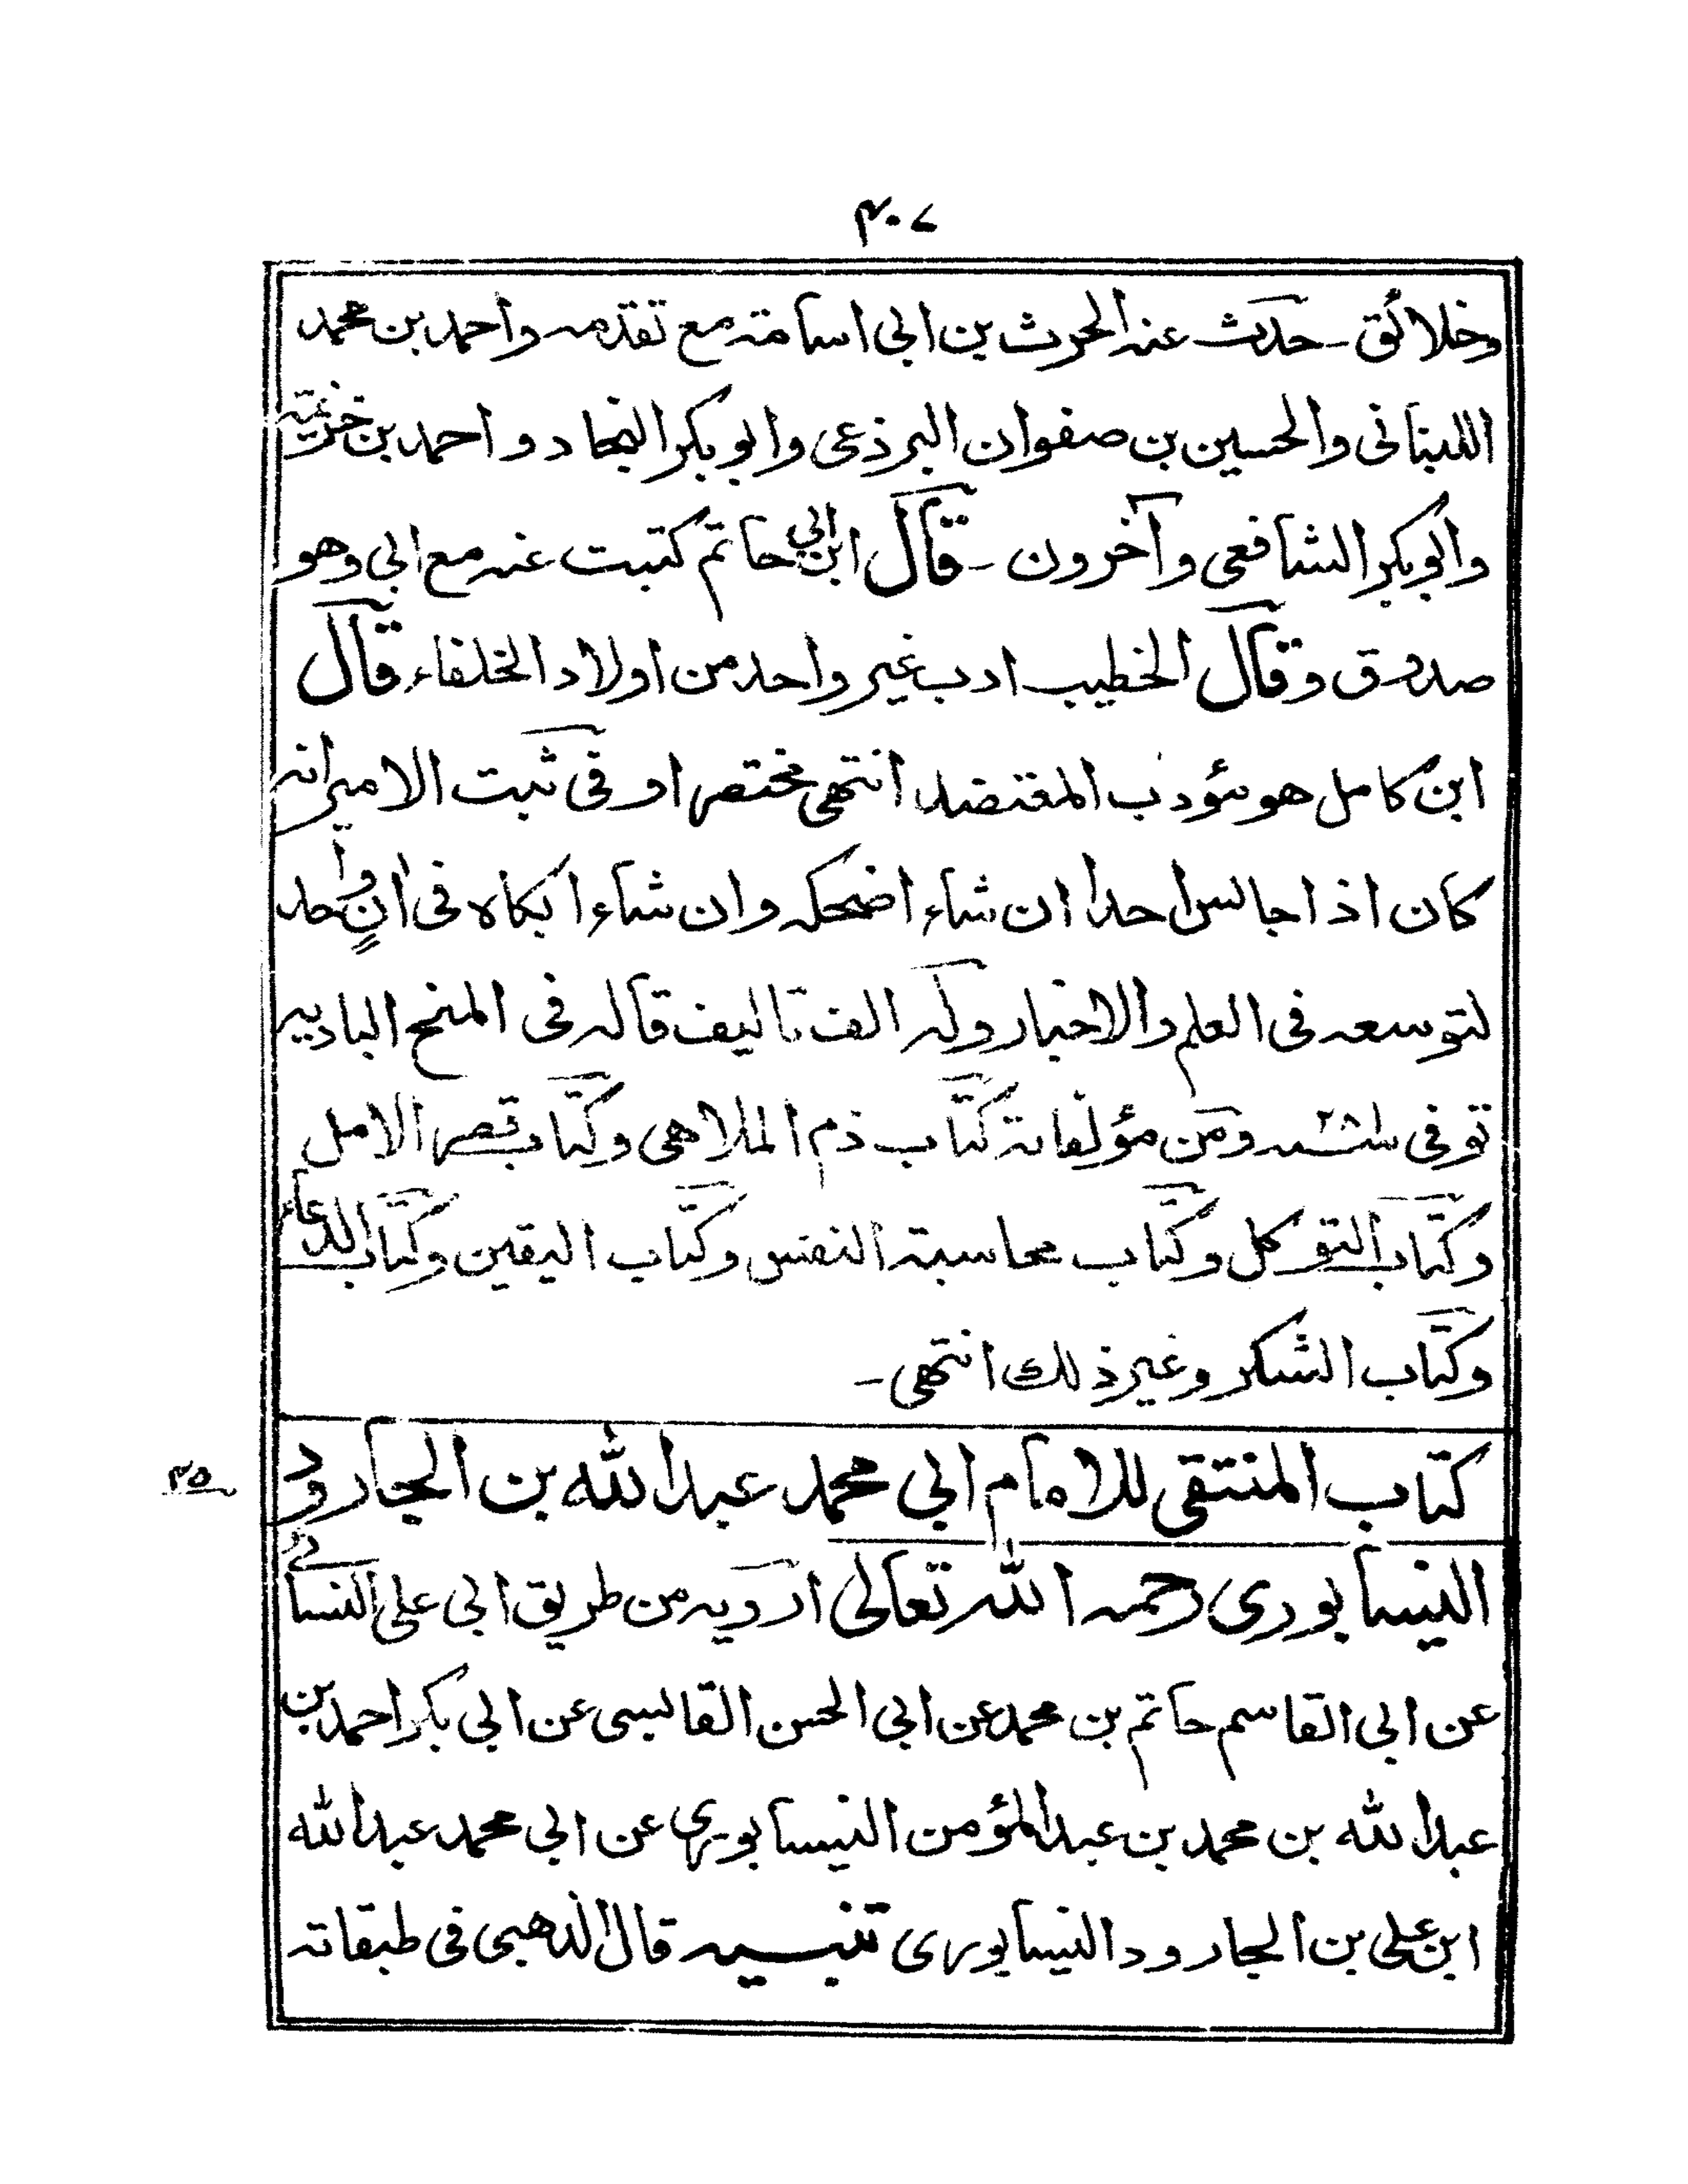 ٤٠٧
وخلائق ـ حدث عنه الحرث بن ابى اسامة مع تقدمه واحمد بن محمد
اللبنانى والحسين بن صفوان البرذعى وابو بكر النجاد و احمد بن خزيمة
وابو بكر الشافعى وآخرون ـ قال ابن ابي حاتم كتبت عنه مع ابى وهو
صدوق وقال الخطيب ادب غير واحد من اولاد الخلفاء قال
ابن كامل هو مؤدب المعتضد انتهى مختصرا وفى ثبت الامير انه
كان اذا جالس احدا ان شاء اضحكه وان شاء ابكاه فى انٍ واحد
لتوسعه فى العلم والاخبار وله الف تاليف قاله فى المنح الباديه
توفى سنه ومن مؤلفاته كتاب ذم الملاهى وكتاب قصر الامل
وكتاب التوكل وكتاب محاسبة النفس وكتاب اليقين وكتاب الدعاء
وكتاب الشكر وغير ذلك انتهى ـ
كتاب المنتقى للامام ابي محمد عبد الله بن الجارود
٢٥
النيسابورى رحمه الله تعالى ارويه من طريق ابى على النسائى
عن ابى القاسم حاتم بن محمد عن ابى الحسن القابسى عن ابى بكر احمد بن
عبد الله بن محمد بن عبد المؤمن النيسابورى عن ابى محمد عبد الله
ابن على بن الجارود النيسابورى تنبيه قال الذهبى فى طبقاته